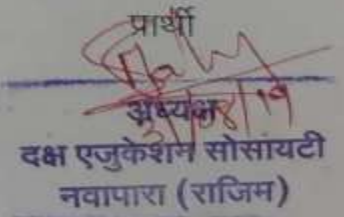 प्रार्थी
अध्यक्ष
दक्ष एजुकेशन सोसायटी
नवापारा (राजिम)